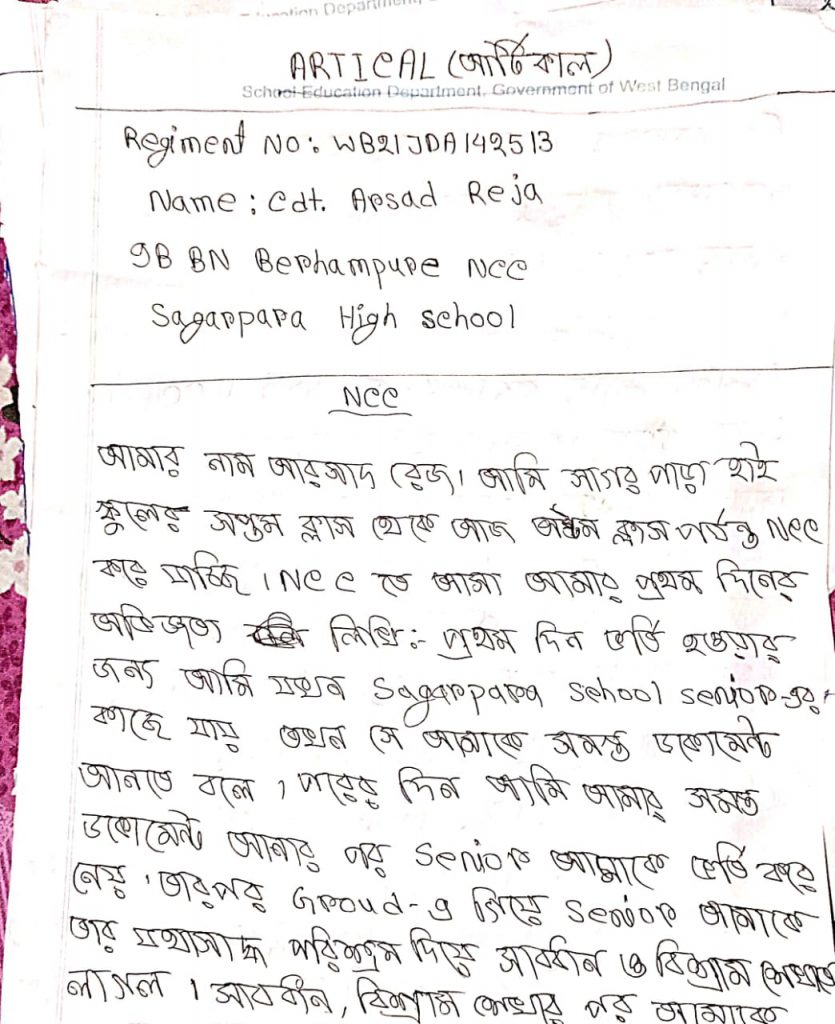 ation Department,
ARTICAL (আর্টিকাল)
School Education Department, Government of West Bengal
Regiment No: WB21JDA142513
Name: Cdt. Arsad Reja
9B BN Berhampure NCC
Sagarpara High school
NCC
আমার নাম আরসাদ রেজা। আমি সাগর পাড়া হাই
স্কুলের সপ্তম ক্লাস থেকে আজ অষ্টম ক্লাস পর্যন্ত NCC
করে যাচ্ছি। NCC তে আসা আমার প্রথম দিনের
লিখি:- প্রথম দিন ভর্তি হওয়ার
জন্য আমি যখন Sagarpara school senior-এর
কাছে যায় তখন সে আমাকে সমস্ত ডকোমেন্ট
আনতে বলে, পরের দিন আমি আমার সমস্ত
ডকোমেন্ট আনার পর senior আমাকে ভর্তি করে
নেয়। তারপর Groud-এ গিয়ে senior আমাকে
তার পরিশ্রম দিয়ে সাবধীন ও বিশ্রাম শেখাতে
লাগল। সাবধীন, বিশ্রাম শেখার পর আমাকে